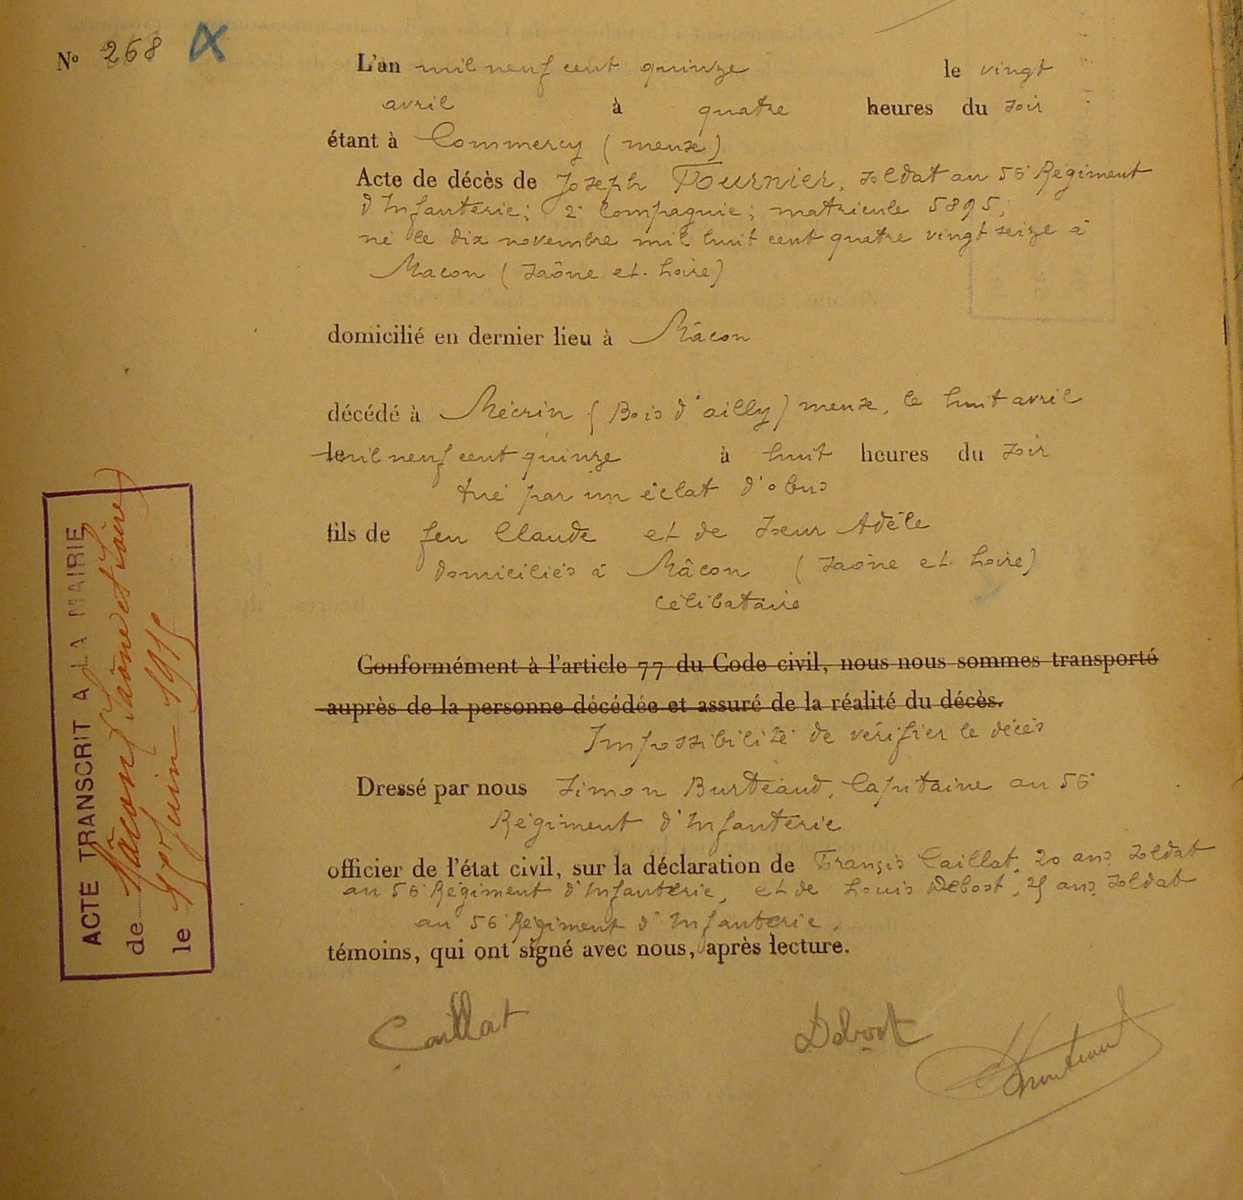 N° 268 X
L'an mil neuf cent quinze le vingt
avril à quatre heures du soir
étant à Commercy (meuse)
Acte de décès de Joseph Fournier, soldat au 56e Régiment
d'Infanterie; 2e Compagnie; matricule 5895;
né le dix novembre mil huit cent quatre vingt seize à
Macon (Saône et Loire)
domicilié en dernier lieu à Mâcon
décédé à Mécrin (Bois d'ailly) meuse, le huit avril
le mil neuf cent quinze à huit heures du soir
tué par un éclat d'obus
fils de feu Claude et de Sœur Adèle
domiciliés à Mâcon (Saône et Loire)
Célibataire
Conformément à l'article 77 du Code civil, nous nous sommes transporté
auprès de la personne décédée et assuré de la réalité du décès.
Impossibilité de vérifier le décès
Dressé par nous Simon Burtéaud, Capitaine au 56e
Régiment d'Infanterie
officier de l'état civil, sur la déclaration de François Caillat, 20 ans, soldat
au 56e Régiment d'Infanterie, et de Louis Debost, 25 ans, soldat
au 56e Régiment d'Infanterie,
témoins, qui ont signé avec nous, après lecture.
Caillat
Debost
ACTE TRANSCRIT A LA MAIRIE
de Mâcon (Saône et Loire)
le juin 1915